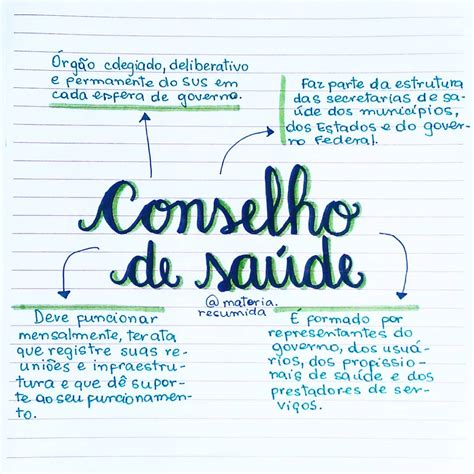 Órgão colegiado, deliberativo
e permanente do SUS em
cada esfera de governo.
Faz parte da estrutura
das secretarias de sa-
úde dos municípios,
dos Estados e do gover
no Federal.
Conselho
de saúde
@materia.
resumida
Deve funcionar
mensalmente, ter ata
que registre suas re-
uniões e infraestru-
tura e que dê supor-
te ao seu funcionamen-
to.
É formado por
representantes do
governo, dos usuá-
rios, dos profissio-
nais de saúde e dos
prestadores de ser-
viços.